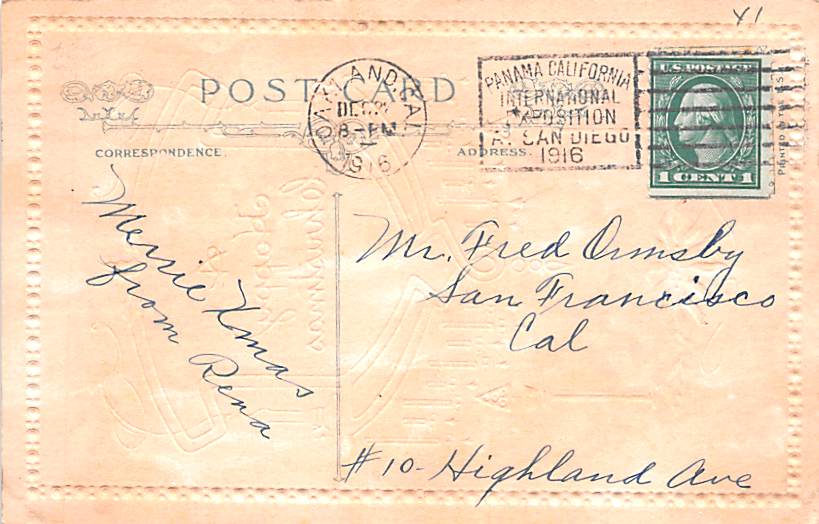 41
POST CARD
OAKLAND, CAL
DEC
8-PM
1916
PANAMA CALIFORNIA
INTERNATIONAL
EXPOSITION
AT SAN DIEGO
1916
U.S. POSTAGE
1 CENT 1
CORRESPONDENCE.
ADDRESS.
Merrie Xmas
from Rena
Mr. Fred Ormsby
San Francisco
Cal
#10- Highland Ave